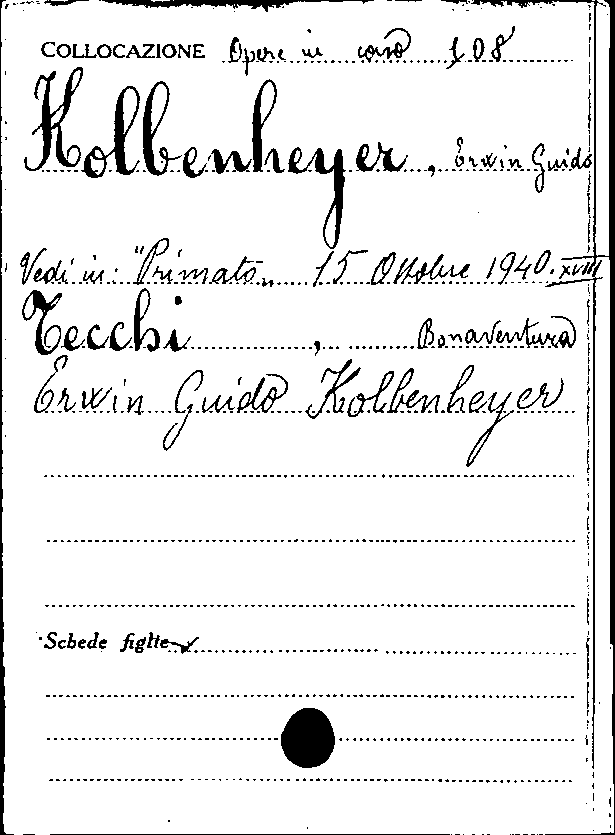 COLLOCAZIONE Opere in corso 108
Kolbenheyer, Erwin Guido
Vedi in: "Primato„ 15 Ottobre 1940. XVIII
Tecchi, Bonaventura
Erwin Guido Kolbenheyer
Schede figlie